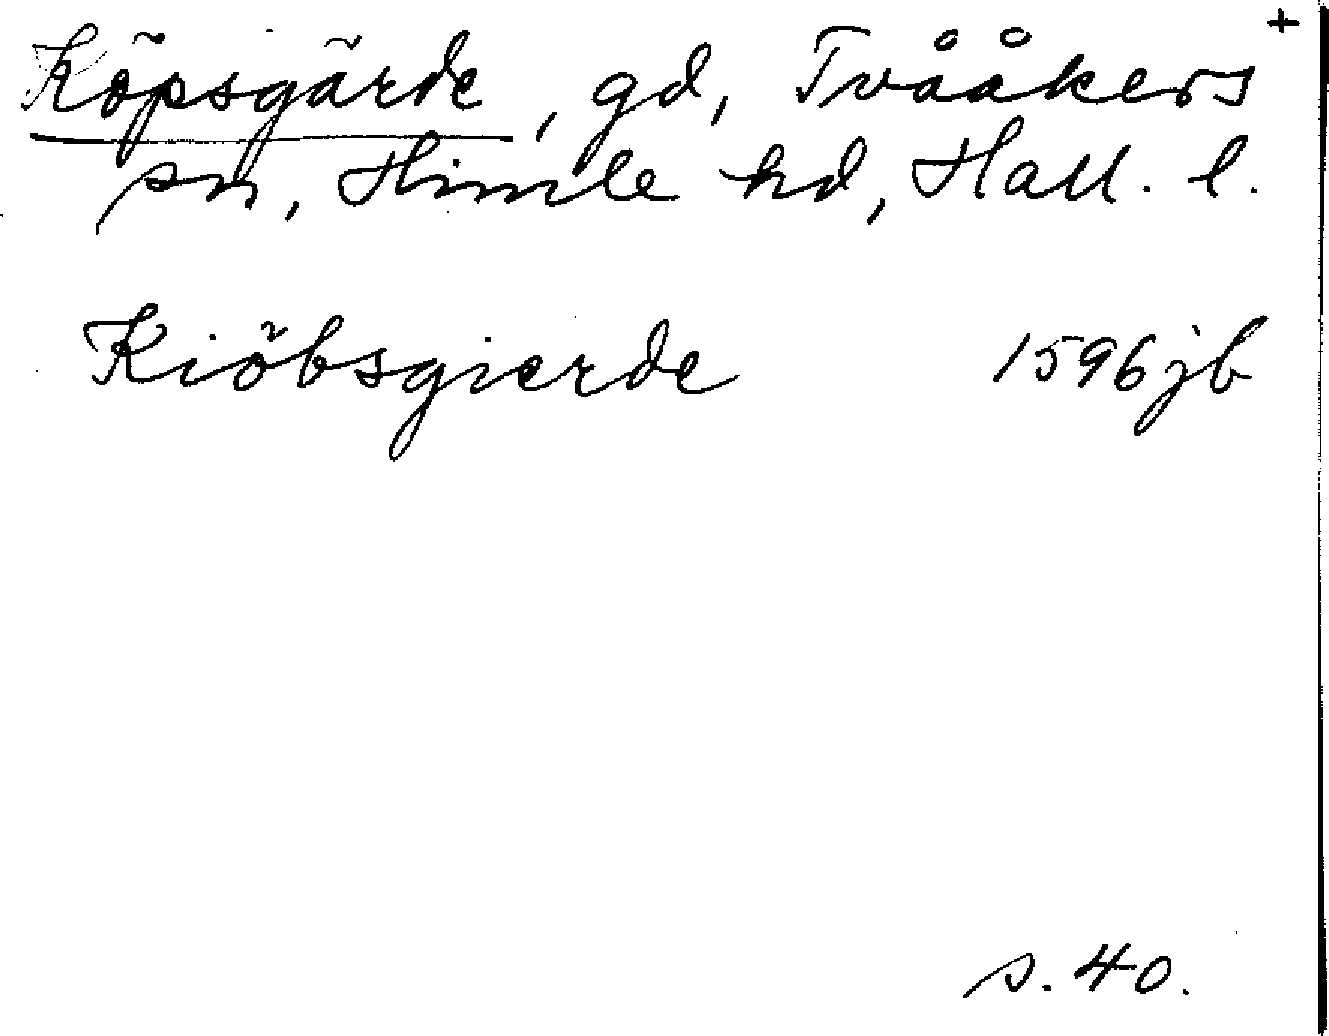 Köpsgärde, gd, Tvååkers +
sn, Himle hd, Hall. l.
Kiöbsgierde 1596 jb
s. 40.